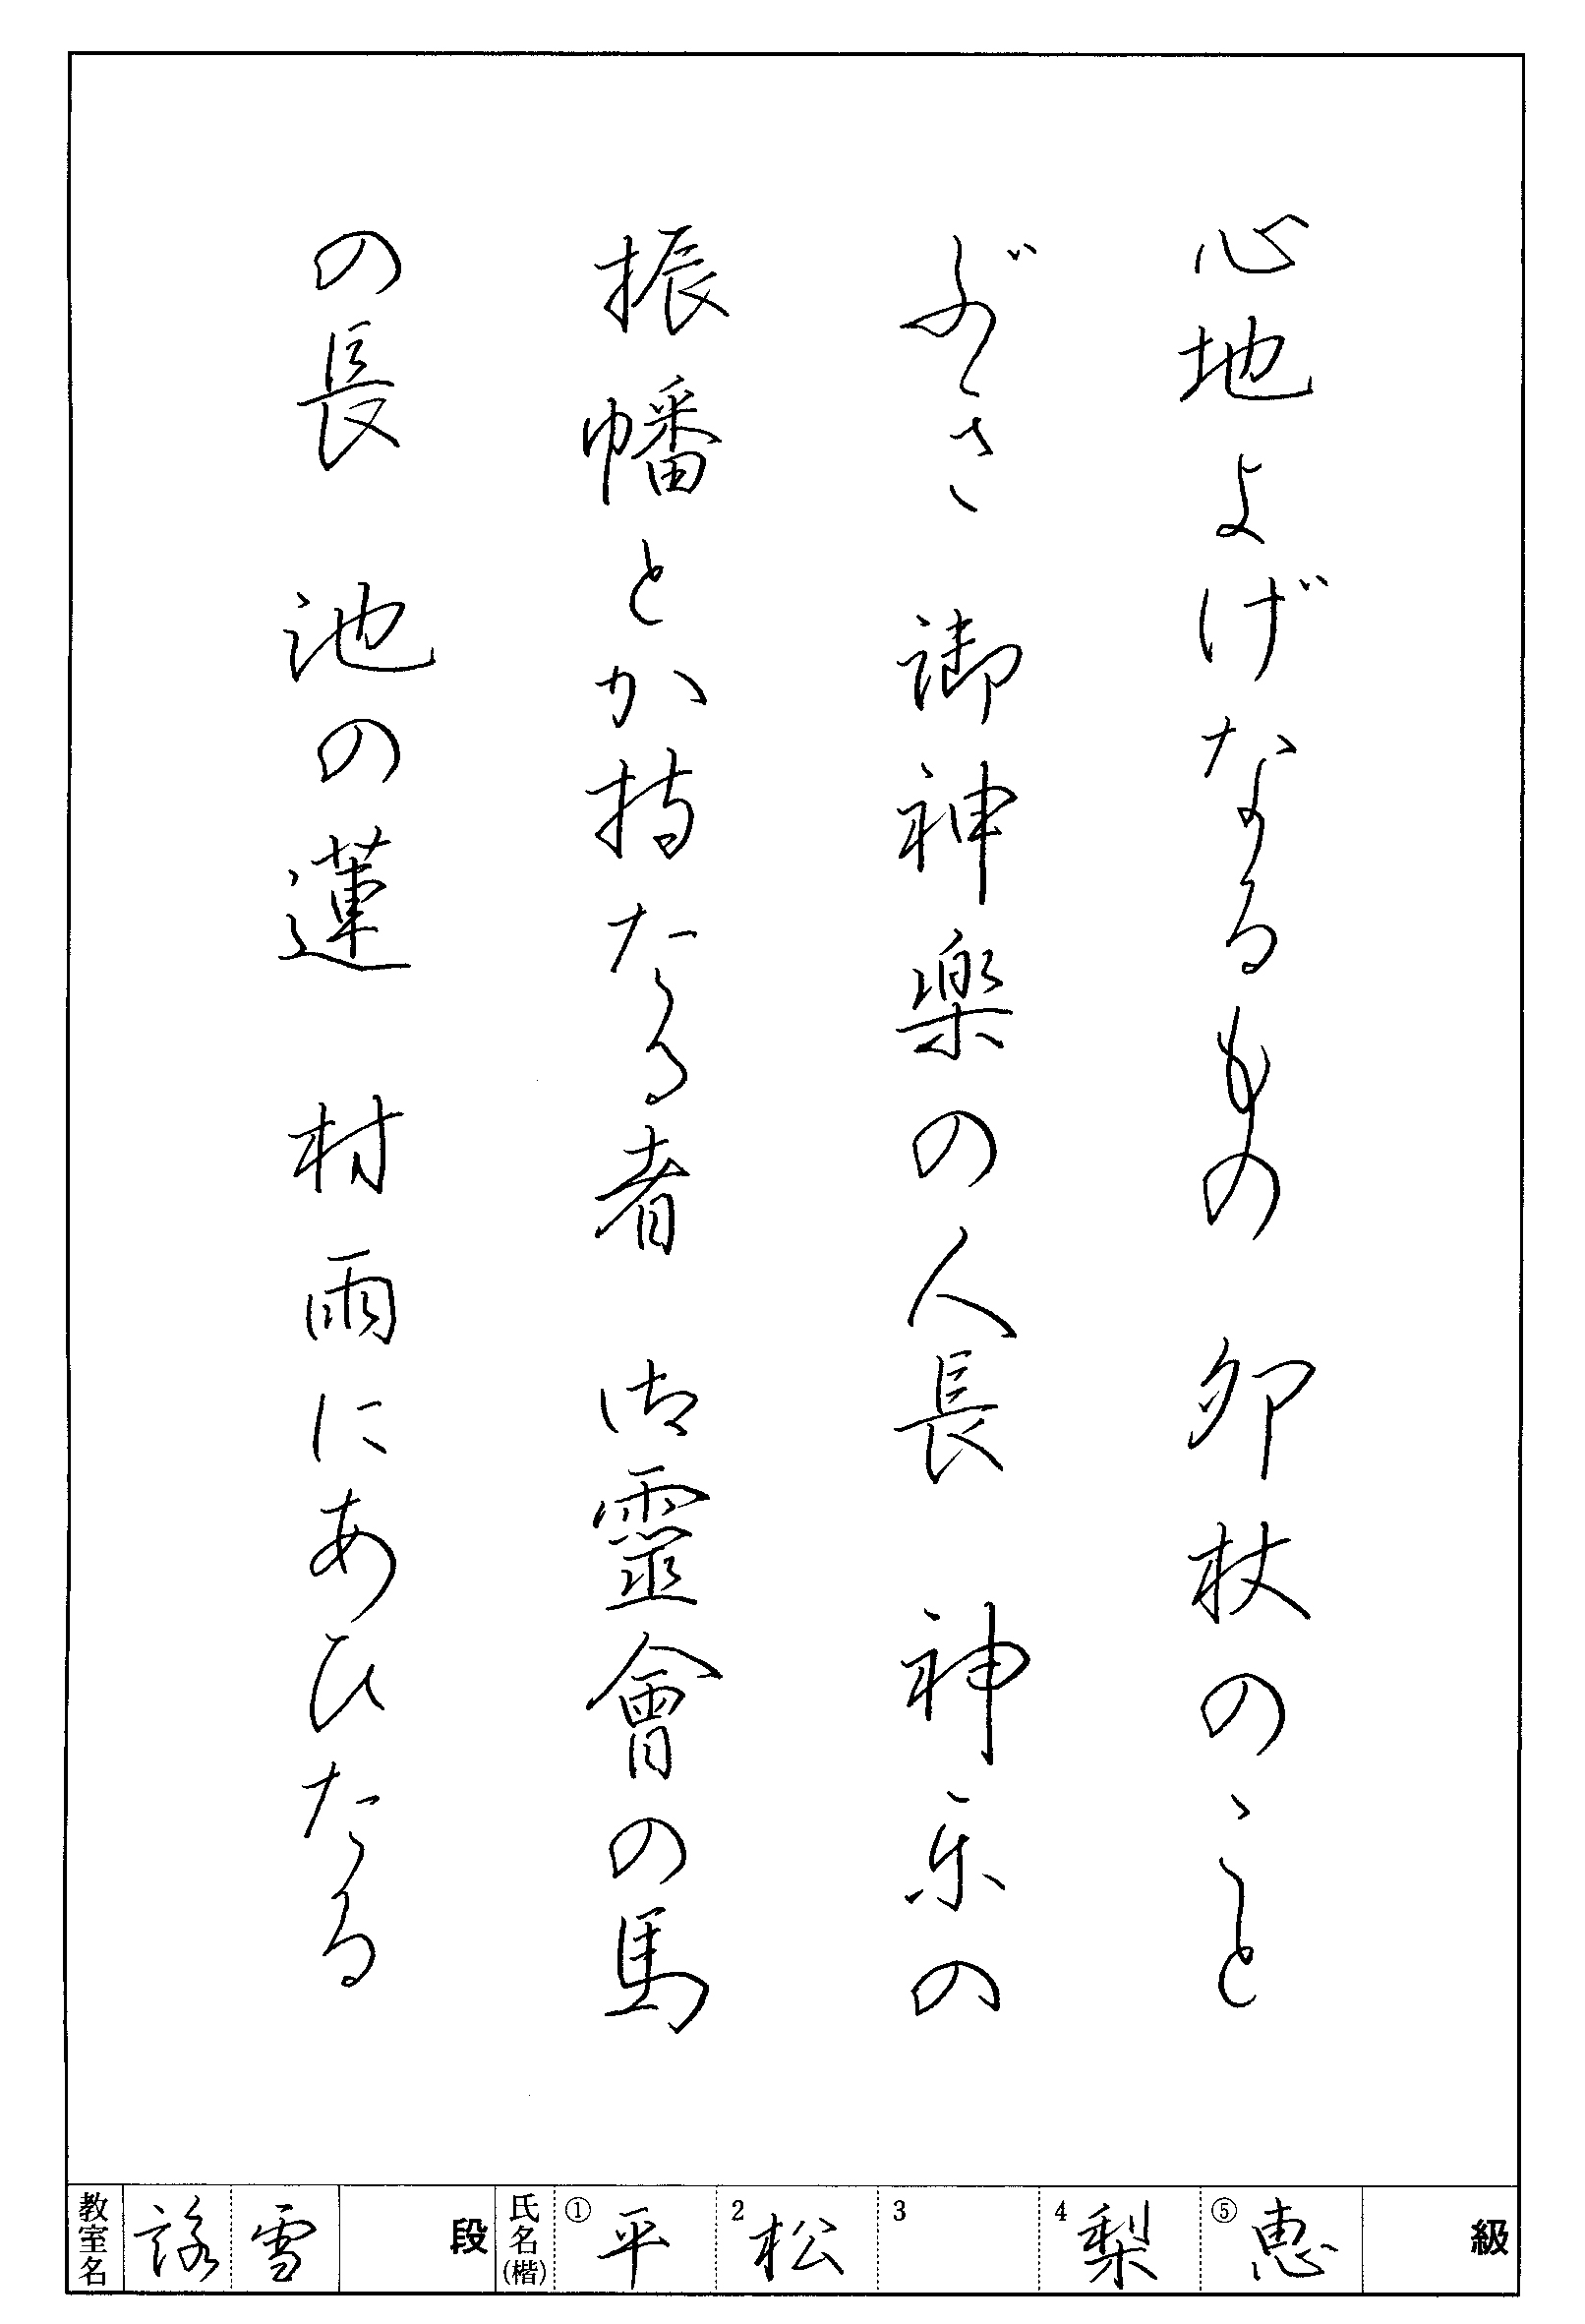 心地よげなるもの　卯杖のこと
ぶき　御神楽の人長　神楽の
振幡とか持たる者　御霊會の馬
の長　池の蓮　村雨にあひたる
教室名 詠雪 段 氏名(楷) ① 平 2 松 3 4 梨 ⑤ 恵 級